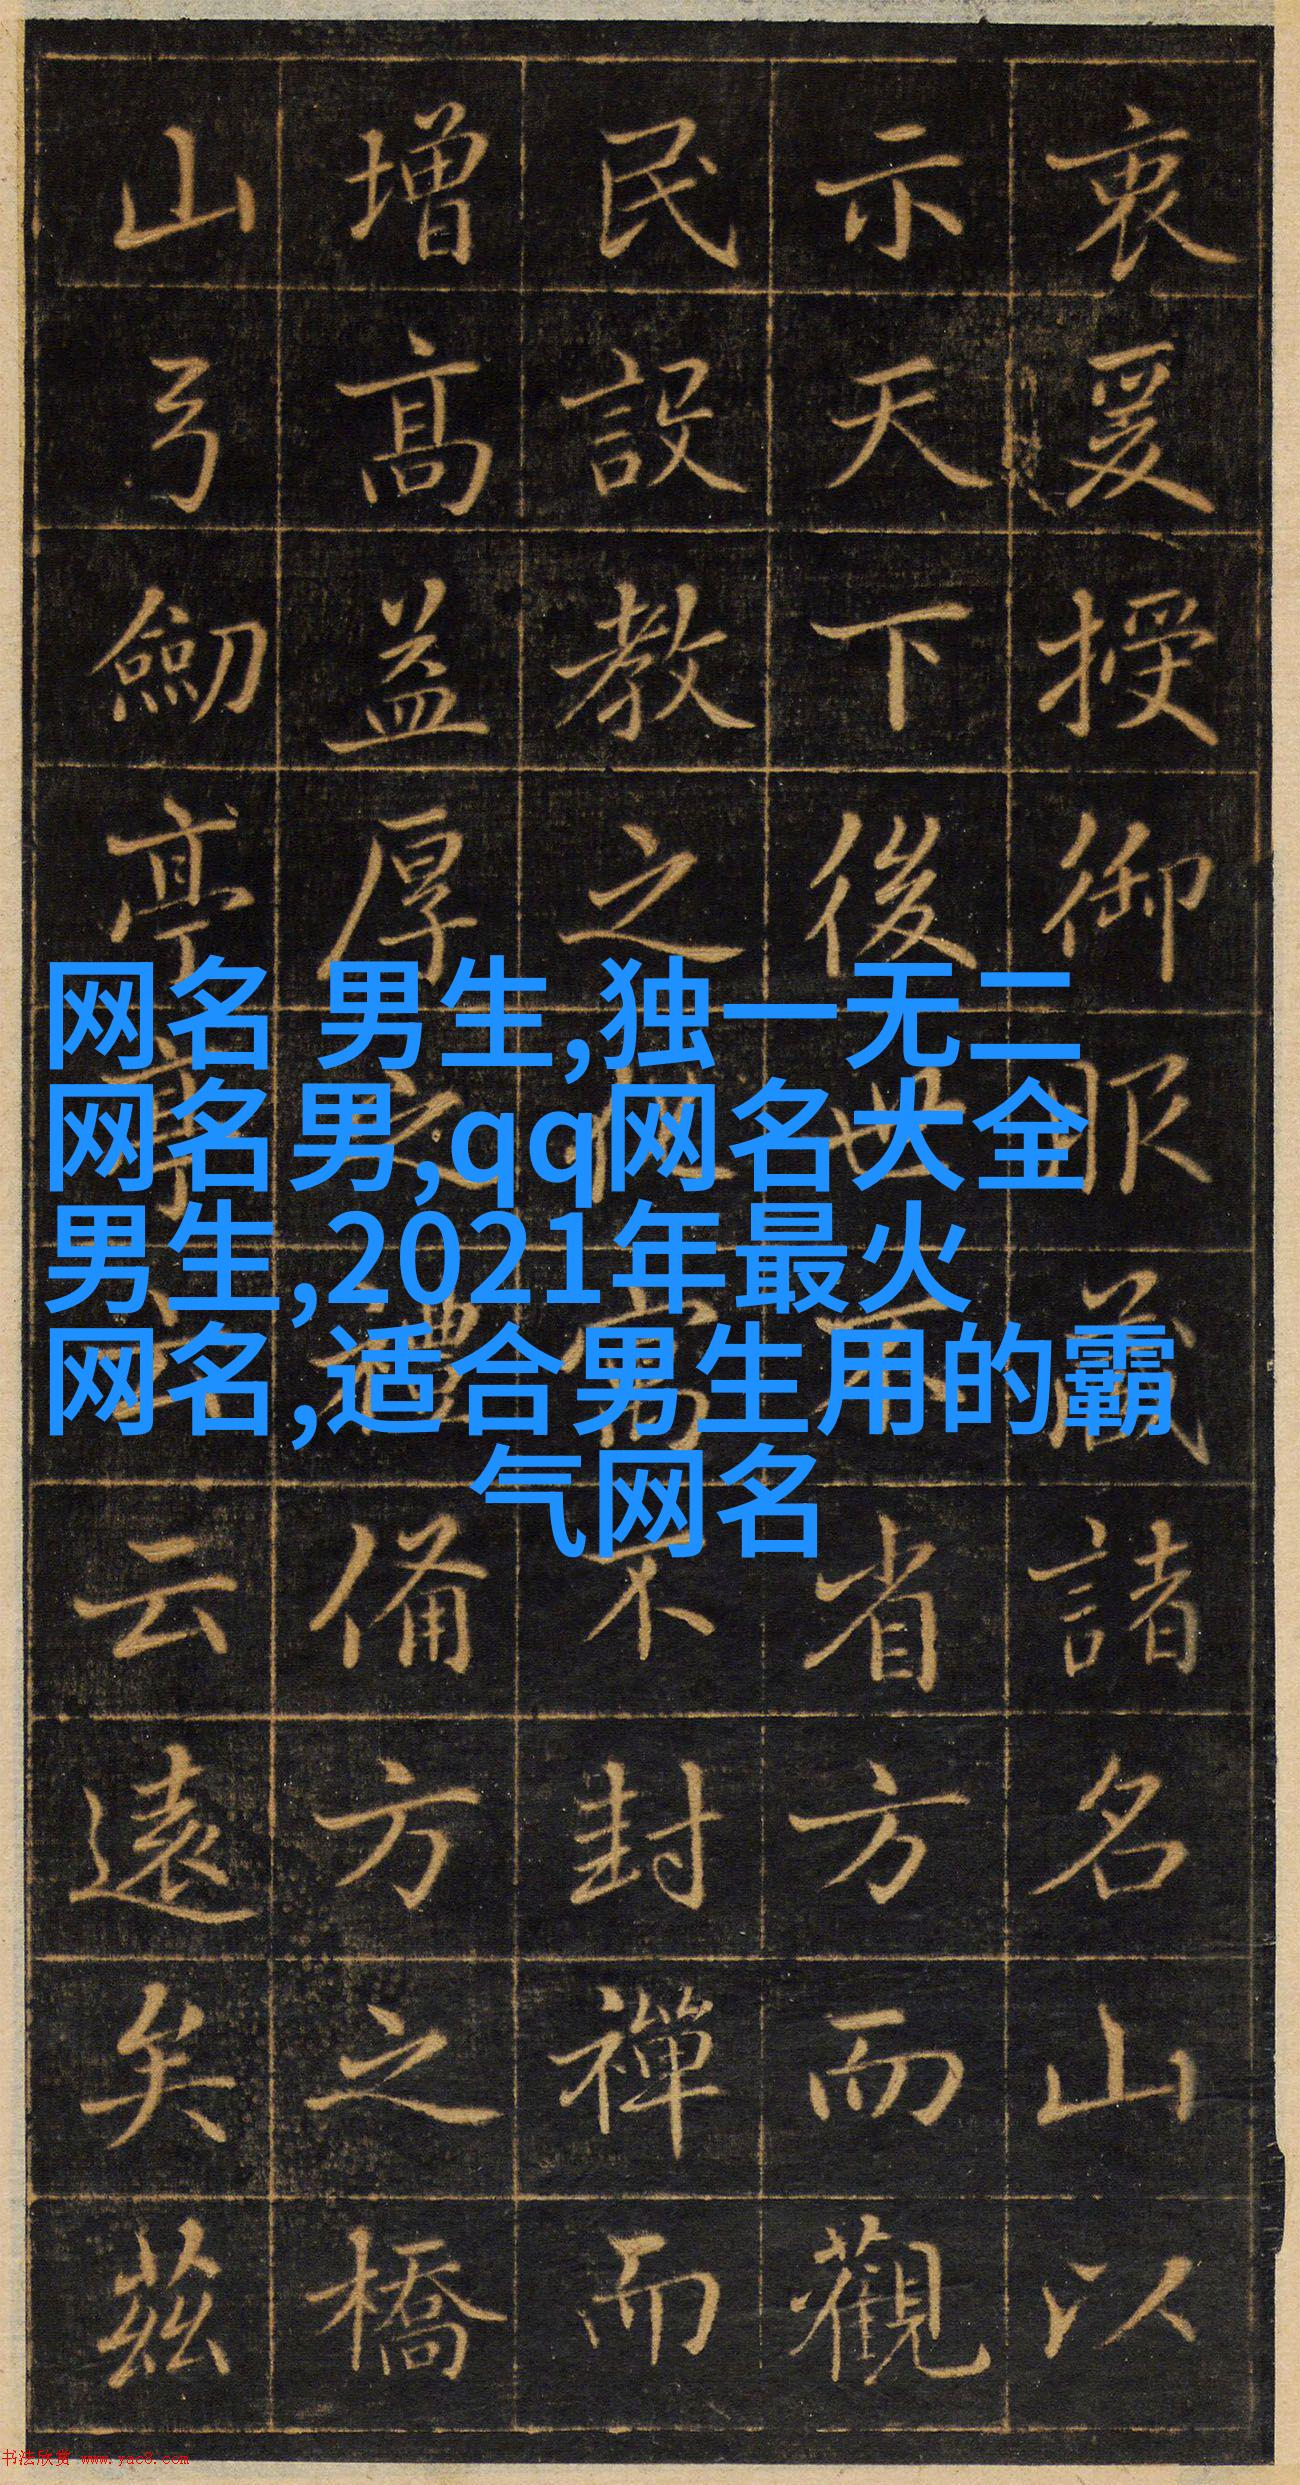 衷爰授御服藏諸名山以
示天下後世不省方而觀
民設教之不封禪而
增高益厚之禮備方之橋
山弓劒亭亭云云遠矣茲
网名 男生,独一无二
网名男,qq网名大全
男生,2021年最火
网名,适合男生用的霸
气网名
书法欣赏 www.yac8.com